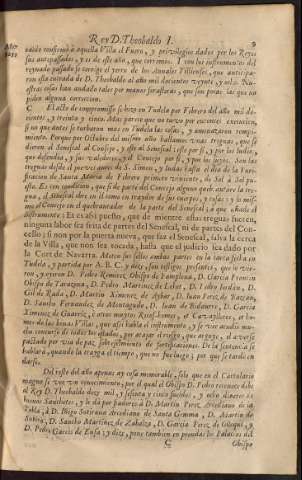 Rey D. Theobaldo I. 9
Año
1235
valde confirmó a aquella Villa el Fuero, y privilegios dados por los Reyes
sus antepassados, y es de este año, que corremos. Y con los instrumentos del
reynado passado se corrige el yerro de los Annales Pistienses, que anticipa-
ron esta entrada de D. Theobaldo al año mil docientos veynte, y ocho. Nu-
estras cosas han andado tales por manos forasteras, que son pocas las que no
piden alguna correccion.
C El acto de compromisso se hizo en Tudela por Febrero del año mil do-
cientos, y treinta, y cinco. Mas parece que no tuvo por entonces execucion,
si no que antes se turbaron mas en Tudela las cosas, y amenazaron rompi-
miento. Porque por Octubre del mismo año hallamos unas treguas, que se
dieron el Senescal al Consejo, y este al Senescal este por si, y por los suyos,
que defendia, y sus valedores, y el Concejo por si, y por los suyos. Son las
treguas desde el jueves antes de S. Simon, y Iudas hasta el dia de la Puri-
ficacion de Santa Maria de Febrero primero viniente, de Sol a Sol pu-
esto. Es con condicion, que si de parte del Concejo alguno quebrantare la tre-
gua, el Senescal dixo en el como en traydor de sus cuerpos, y cosas: y lo mis-
mo el Concejo en el quebrantador de la parte del Senescal; y que añade el
instrumento: Et es assi puesto, que de mientre estas treguas fueren,
ninguna labor sea feita de partes del Senescal, ni de partes del Con-
cello; si non por la puerta nueva, que fizo el Senescal, salva la cerca
de la Villa, que non sea tocada, hasta que el judicio sea dado por
la Cort de Navarra. Metense sellos ambas partes en la carta fecha en
Tudela, y partida por A. B. C. y dize, son testigos presentes, que lo vie-
ron, y oyeron D. Pedro Remirez Obispo de Pamplona, D. Garcia Frontin
Obispo de Tarazona, D. Pedro Martinez de Lehet, D. Pedro Iordan, D.
Gil de Rada, D. Martin Ximenez de Ayvar, D. Iuan Perez de Baztan,
D. Sancho Fernandez de Monteagudo, D. Iuan de Bidaurre, D. Garcia
Ximenez de Guarriz, è otros muytos Ricos-homes, et Cavaylleros, et ho-
mes de las bonas Villas, que assi habla el instrumento, y se vee acudió mu-
cho concurso de todos los estados, por atajar el riesgo, que arguye, el averse
passado por via de paz, sobreseimiento de fortificaciones. De la sentencia se
hablará, quando la trayga el tiempo, que no fue luego; por que se tardó en
darse.
Del resto del año apenas ay cosa memorable, solo que en el Cartulario
magno se vee un reconocimiento, por el qual el Obispo D. Pedro reconoce debe
al Rey D. Theobaldo doze mil, y sesenta y cinco sueldos, y ocho dineros de
buenos Sanchetes; y le dà por fiadores à D. Martin Perez Arcediano de la
Tabla, à D. Diego Sotirana Arcediano de Santa Gemma, D. Martin de
Subiza, D. Sancho Martinez de Zabalza, D. Garcia Perez de Góngui, y
D. Pedro Garces de Ensa: y dize, pone tambien en prendas los Palacios del
C Obispo